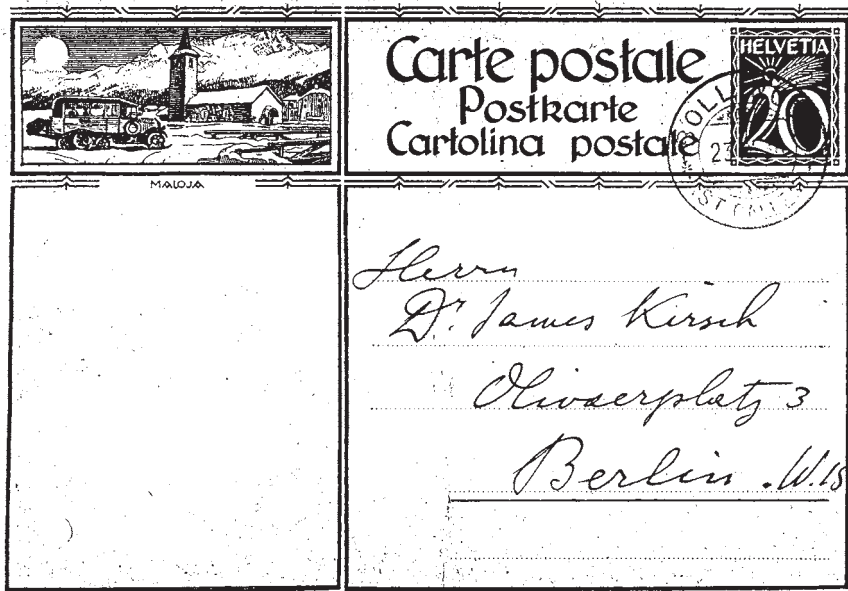 Carte postale
Postkarte
Cartolina postale
HELVETIA
20
MALOJA
Herrn
Dr. James Kirsch
Olivaerplatz 3
Berlin. W.15